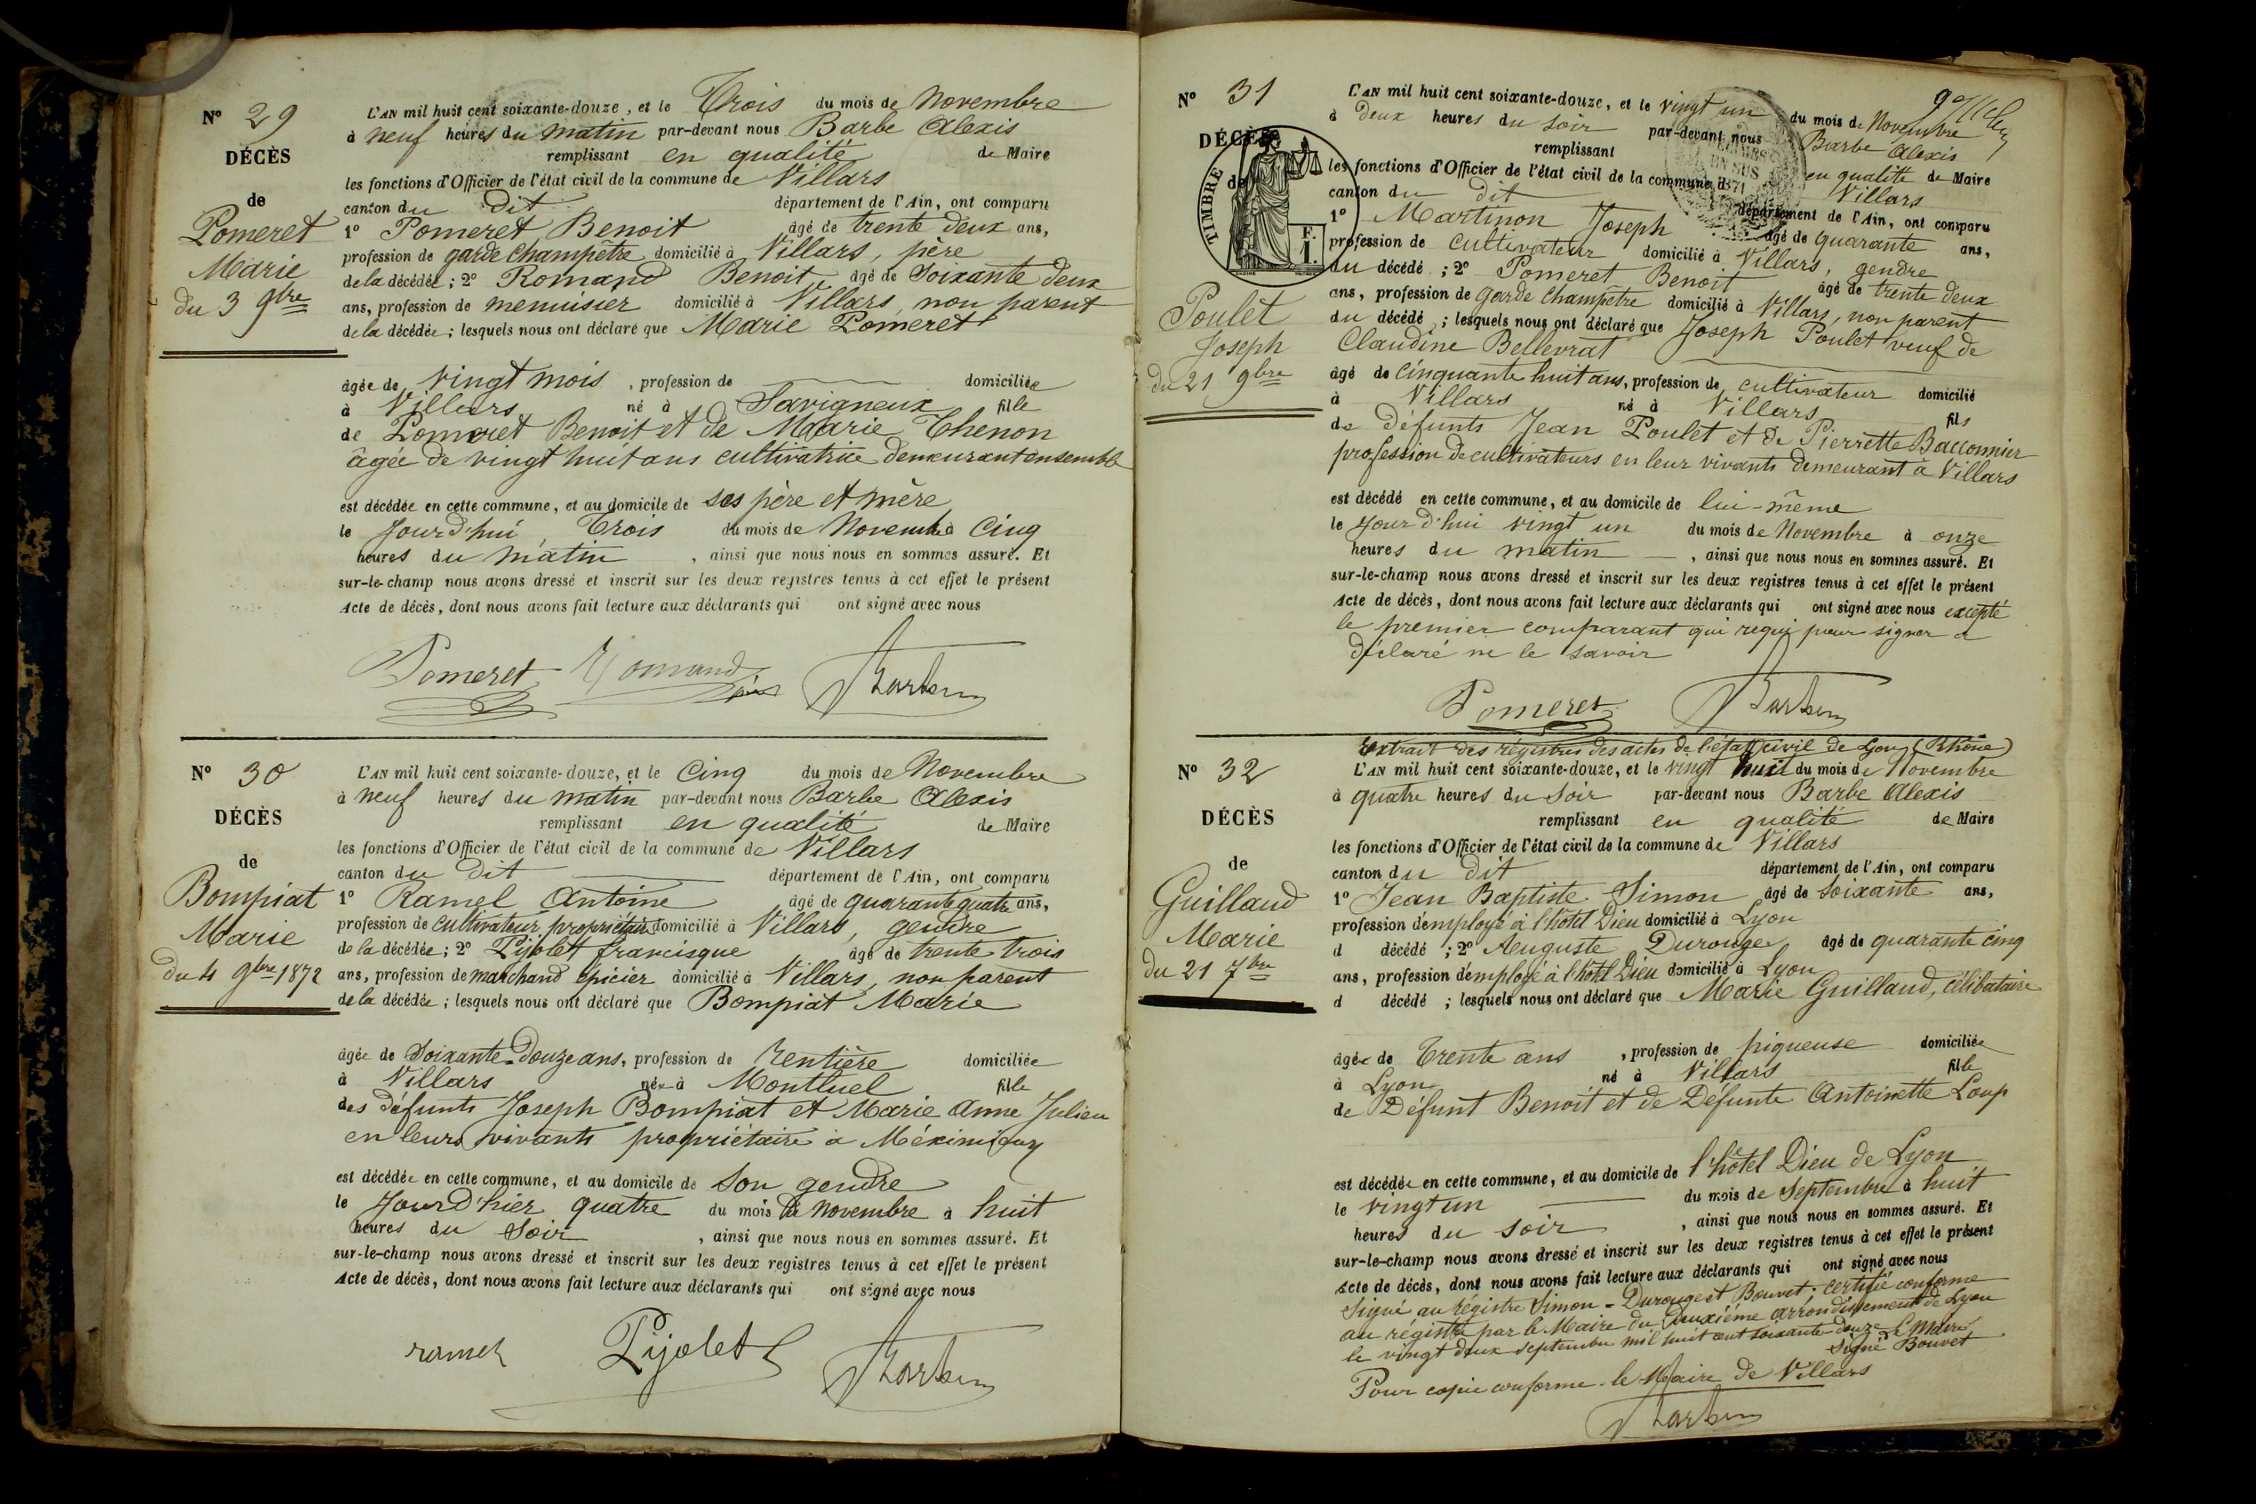 N° 29
DÉCÈS
de
Pomeret
Marie
du 3 9bre
L'AN mil huit cent soixante-douze, et le Trois du mois de Novembre
à neuf heures du matin par-devant nous Barbe Alexis
remplissant en qualité de Maire
les fonctions d'Officier de l'état civil de la commune de Villars
canton du dit département de l'Ain, ont comparu
1° Pomeret Benoit âgé de trente deux ans,
profession de garde champêtre domicilié à Villars, père
de la décédée ; 2° Romand Benoit âgé de Soixante deux
ans, profession de menuisier domicilié à Villars, non parent
de la décédée ; lesquels nous ont déclaré que Marie Pomeret
âgée de vingt mois, profession de domiciliée
à Villars né à Savigneux fille
de Pomeret Benoit et de Marie Thenon
âgée de vingt huit ans cultivatrice demeurant ensemble
est décédée en cette commune, et au domicile de ses père et mère
le Jourd'hui Trois du mois de Novembre à Cinq
heures du matin, ainsi que nous nous en sommes assuré. Et
sur-le-champ nous avons dressé et inscrit sur les deux registres tenus à cet effet le présent
Acte de décès, dont nous avons fait lecture aux déclarants qui ont signé avec nous
Pomeret Romand Barbe
N° 30
DÉCÈS
de
Bompiat
Marie
du 4 9bre 1872
L'AN mil huit cent soixante-douze, et le Cinq du mois de Novembre
à neuf heures du matin par-devant nous Barbe Alexis
remplissant en qualité de Maire
les fonctions d'Officier de l'état civil de la commune de Villars
canton du dit département de l'Ain, ont comparu
1° Ramel Antoine âgé de quarante quatre ans,
profession de cultivateur propriétaire domicilié à Villars, gendre
de la décédée ; 2° Pijolett francisque âgé de trente trois
ans, profession de marchand épicier domicilié à Villars, non parent
de la décédée ; lesquels nous ont déclaré que Bompiat Marie
âgée de Soixante Douze ans, profession de rentière domiciliée
à Villars née à Montluel fille
des défunts Joseph Bompiat et Marie Anne Julien
en leurs vivants propriétaire à Méximieux
est décédée en cette commune, et au domicile de Son gendre
le Jourd'hier quatre du mois de Novembre à huit
heures du Soir, ainsi que nous nous en sommes assuré. Et
sur-le-champ nous avons dressé et inscrit sur les deux registres tenus à cet effet le présent
Acte de décès, dont nous avons fait lecture aux déclarants qui ont signé avec nous
ramel Pijolet Barbe
N° 31
DÉCÈS
de
TIMBRE
F.
1.
Poulet
Joseph
du 21 9bre
L'AN mil huit cent soixante-douze, et le vingt un du mois de Novembre
à Deux heures du soir par-devant nous Barbe Alexis
remplissant en qualité de Maire
les fonctions d'Officier de l'état civil de la commune de Villars
canton du dit département de l'Ain, ont comparu
1° Martinon Joseph âgé de quarante ans,
profession de cultivateur domicilié à Villars, gendre
du décédé ; 2° Pomeret Benoit âgé de trente deux
ans, profession de garde champêtre domicilié à Villars, non parent
du décédé ; lesquels nous ont déclaré que Joseph Poulet veuf de
Claudine Bellevrat
âgé de Cinquante huit ans, profession de cultivateur domicilié
à Villars né à Villars fils
de Défunts Jean Poulet et de Pierrette Bacconnier
profession de cultivateurs en leur vivants demeurant à Villars
est décédé en cette commune, et au domicile de lui-même
le Jour d'hui vingt un du mois de Novembre à onze
heures du matin, ainsi que nous nous en sommes assuré. Et
sur-le-champ nous avons dressé et inscrit sur les deux registres tenus à cet effet le présent
Acte de décès, dont nous avons fait lecture aux déclarants qui ont signé avec nous excepté
le premier comparant qui requi pour signer a
déclaré ne le savoir
Pomeret Barbe
N° 32
DÉCÈS
de
Guilland
Marie
du 21 7bre
Extrait des régistres des actes de l'état civil de Lyon (Rhône)
L'AN mil huit cent soixante-douze, et le vingt huit du mois de Novembre
à quatre heures du Soir par-devant nous Barbe Alexis
remplissant en qualité de Maire
les fonctions d'Officier de l'état civil de la commune de Villars
canton du dit département de l'Ain, ont comparu
1° Jean Baptiste Simon âgé de Soixante ans,
profession d'employé à l'hôtel Dieu domicilié à Lyon
d décédé ; 2° Auguste Durouge âgé de quarante cinq
ans, profession d'employé à l'hôtel Dieu domicilié à Lyon
d décédé ; lesquels nous ont déclaré que Marie Guilland, célibataire
âgée de Trente ans, profession de piqueuse domiciliée
à Lyon né à Villars fille
de Défunt Benoit et de Défunte Antoinette Loup
est décédée en cette commune, et au domicile de l'hôtel Dieu de Lyon
le vingt un du mois de Septembre à huit
heures du soir, ainsi que nous nous en sommes assuré. Et
sur-le-champ nous avons dressé et inscrit sur les deux registres tenus à cet effet le présent
Acte de décès, dont nous avons fait lecture aux déclarants qui ont signé avec nous
Signé au régistre Simon - Durouge et Bouvet. certifié conforme
au régistre par le Maire du deuxième arrondissement de Lyon
le vingt deux septembre mil huit cent soixante douze le Maire
Signé Bouvet
Pour copie conforme le Maire de Villars
Barbe